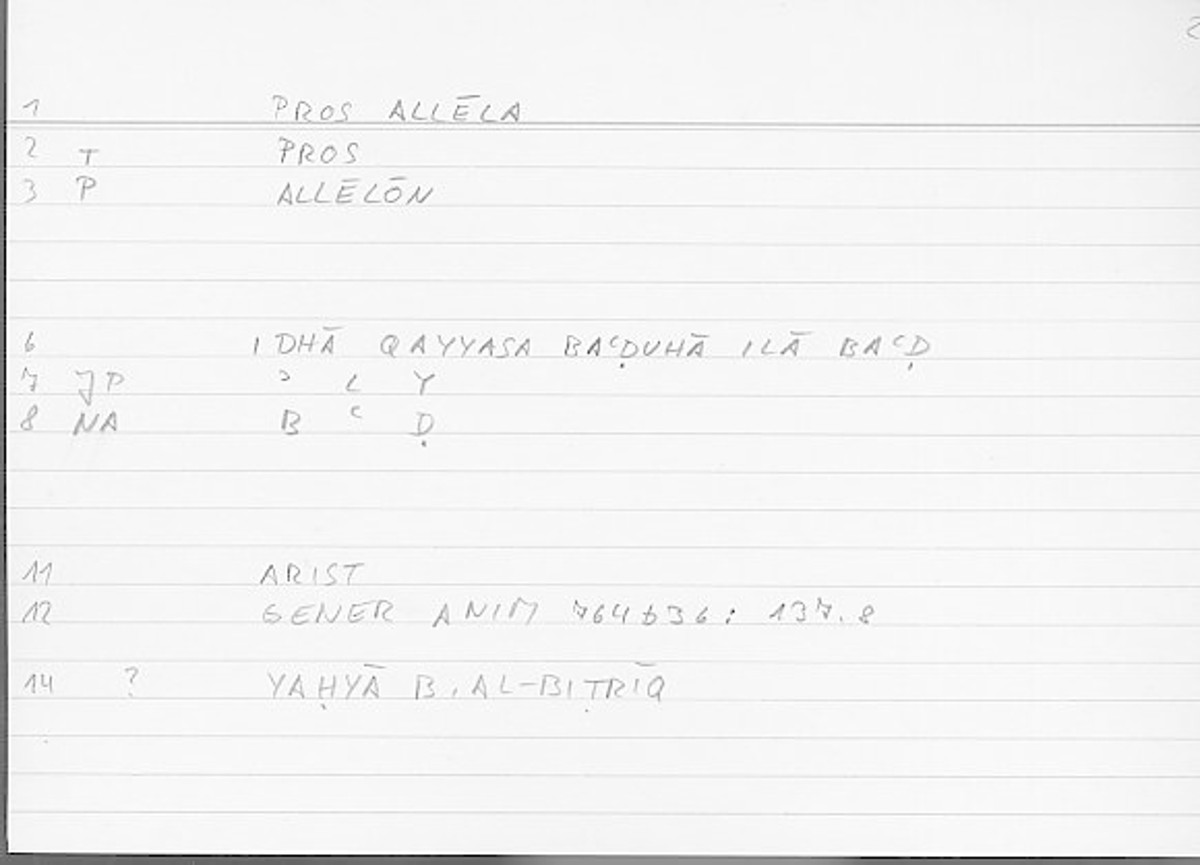 2
1 PROS ALLĒLA
2 T PROS
3 P ALLĒLŌN
6 IDHĀ QAYYASA BAʿḌUHĀ ILĀ BAʿḌ
7 JP ʾ L Y
8 NA B ʿ Ḍ
11 ARIST
12 GENER ANIM 764b36: 137.8
14 ? YAḤYĀ B. AL-BIṬRĪQ